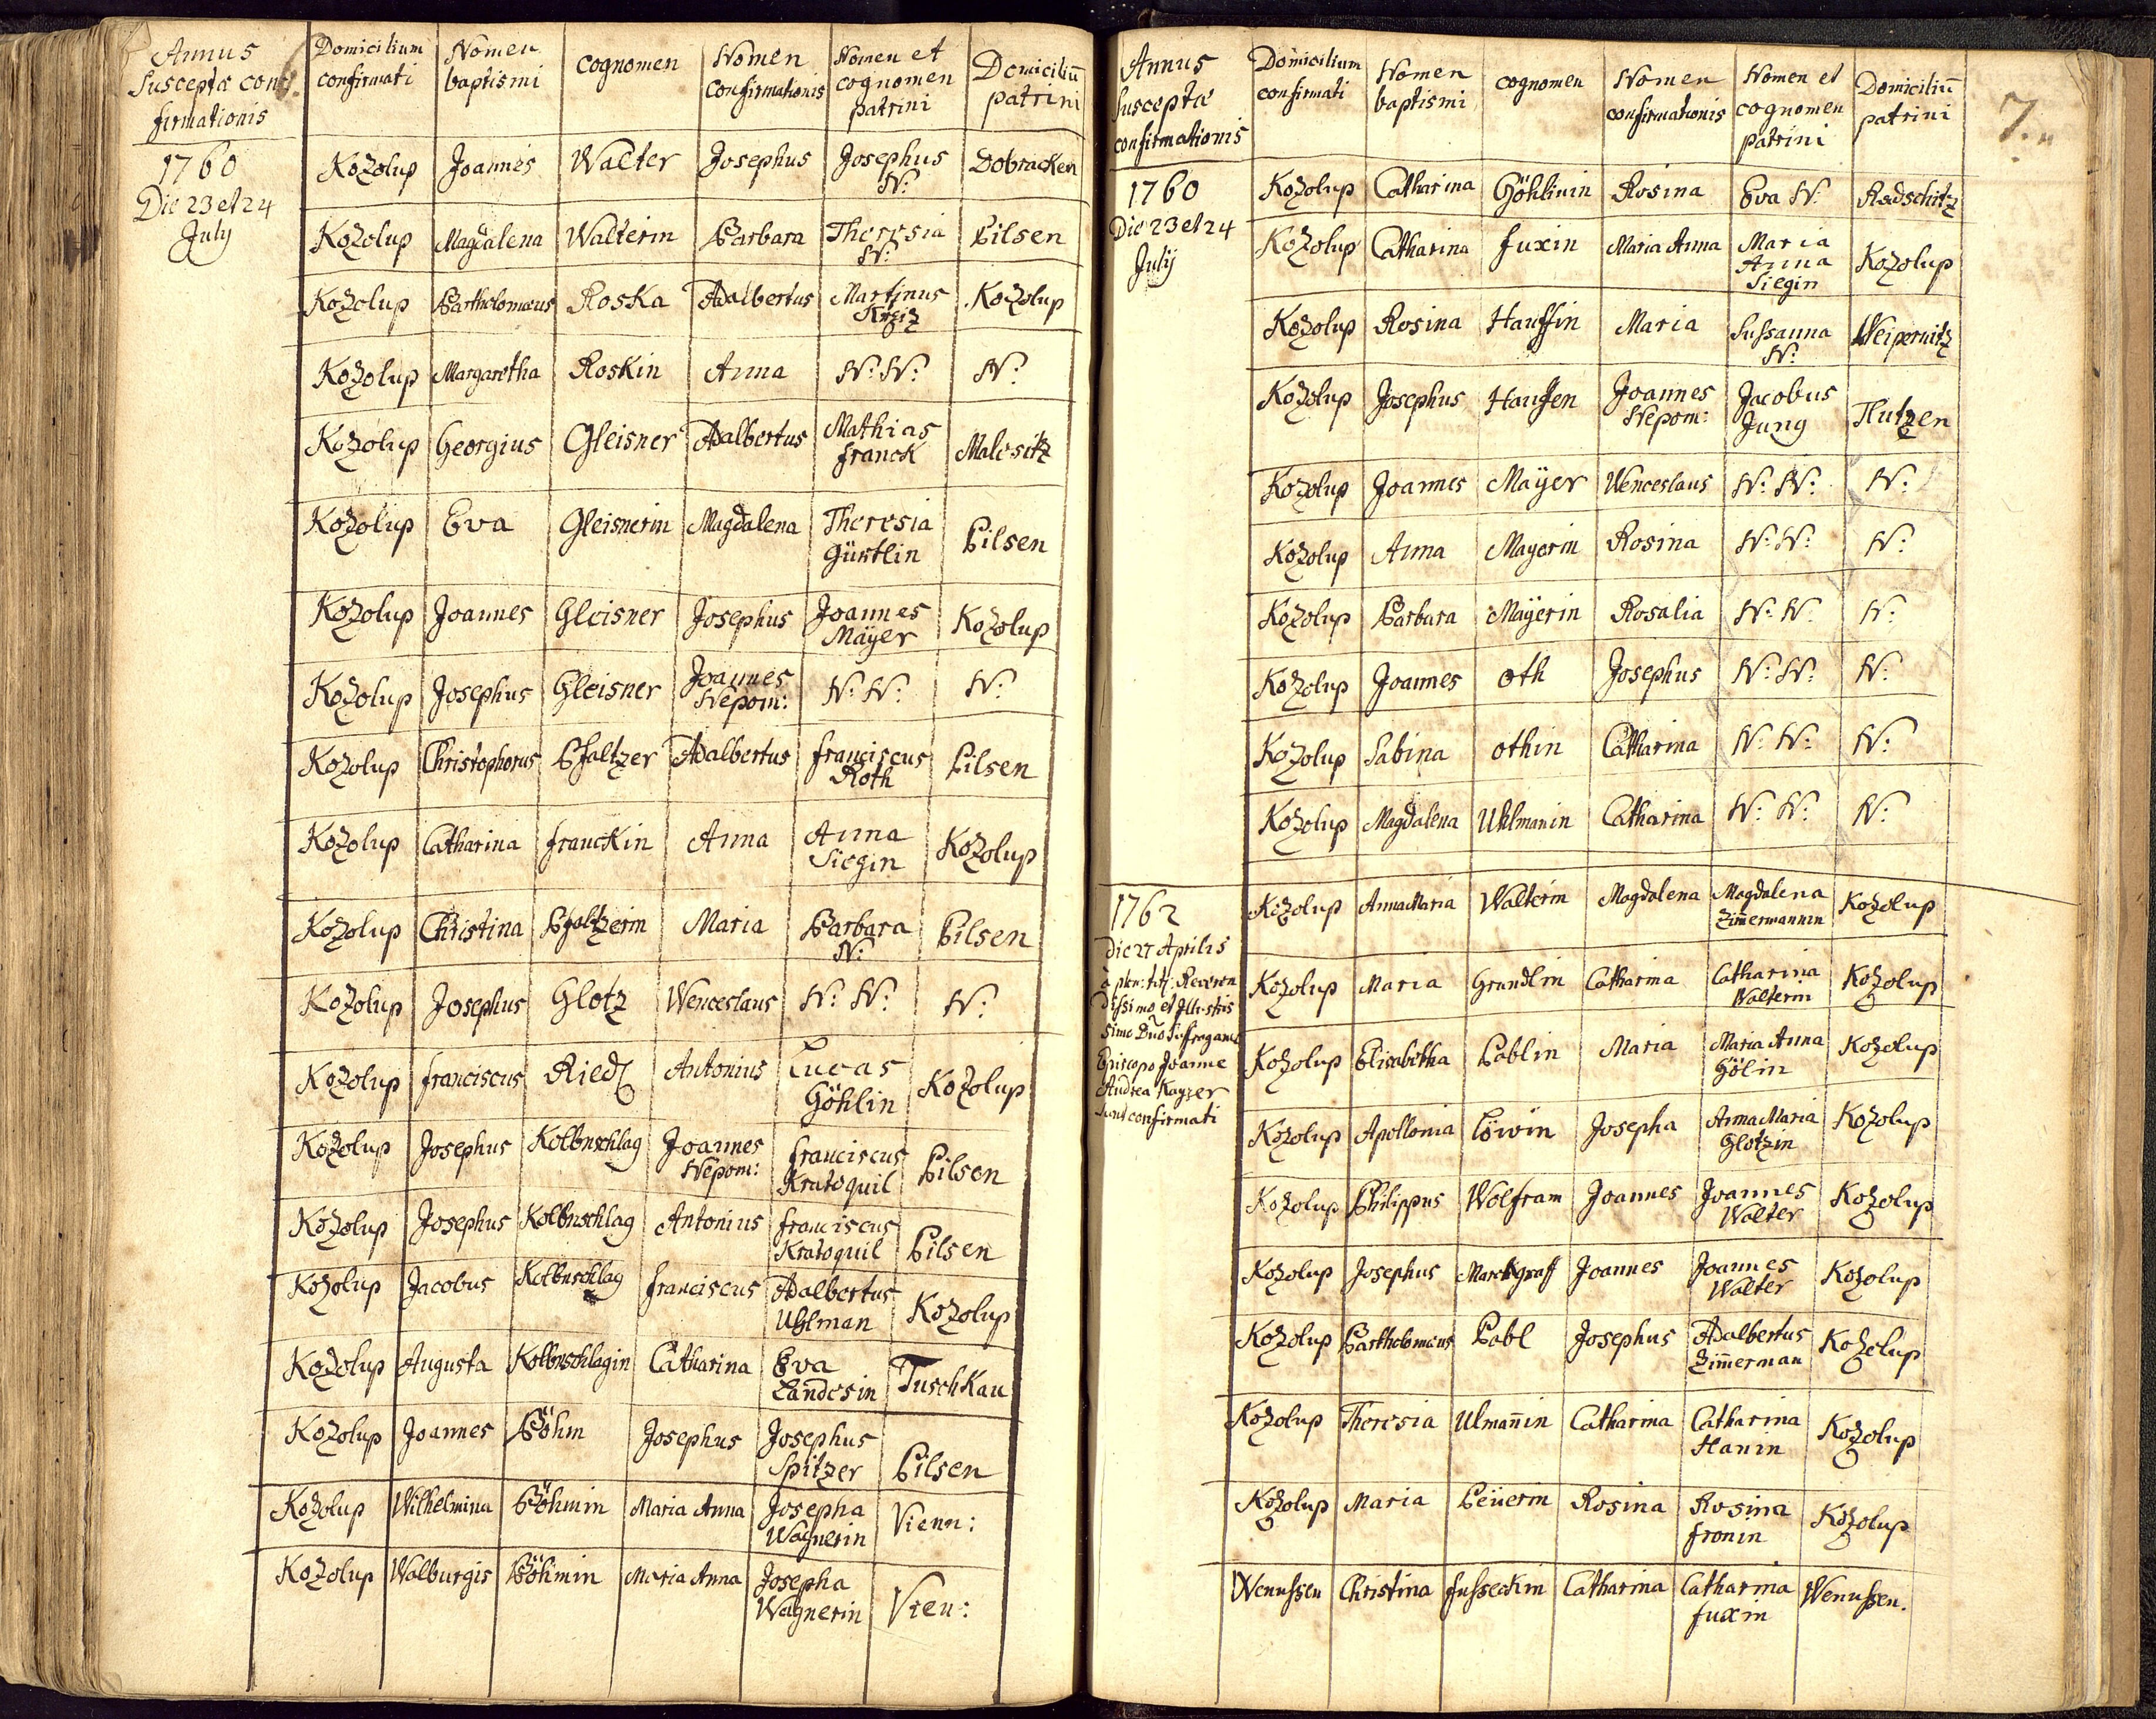 Annus Domicilium Nomen cognomen Nomen Nomen et Domiciliū
Susceptæ con- confirmati baptismi Confirmationis cognomen patrini
firmationis patrini
1760 Kozolup Joannes Walter Josephus Josephus N: Dobracken
Die 23 et 24 July
Kozolup Magdalena Walterin Barbara Theresia N: Pilsen
Kozolup Bartholomæus Roska Adalbertus Martinus Kržiž Kozolup
Kozolup Margaretha Roskin Anna N: N: N:
Kozolup Georgius Gleisner Adalbertus Mathias franck Malesitz
Kozolup Eva Gleisnerin Magdalena Theresia Gürtlin Pilsen
Kozolup Joannes Gleisner Josephus Joannes Mayer Kozolup
Kozolup Josephus Gleisner Joannes Nepom: N: N: N:
Kozolup Christophorus Pfaltzer Adalbertus franciscus Roth Pilsen
Kozolup Catharina franckin Anna Anna Siegin Kozolup
Kozolup Christina Pfaltzerin Maria Barbara N: Pilsen
Kozolup Josephus Glotz Wenceslaus N: N: N:
Kozolup franciscus Riedl Antonius Lucas Göhlin Kozolup
Kozolup Josephus Kolbnschlag Joannes Nepom: franciscus Kratoquil Pilsen
Kozolup Josephus Kolbnschlag Antonius franciscus Kratoquil Pilsen
Kozolup Jacobus Kolbnschlag franciscus Adalbertus Uhlman Kozolup
Kozolup Augusta Kolbnschlagin Catharina Eva Landesin Tuschkau
Kozolup Joannes Böhm Josephus Josephus Spitzer Pilsen
Kozolup Wilhelmina Böhmin Maria Anna Josepha Wagnerin Vienn:
Kozolup Walburgis Böhmin Maria Anna Josepha Wagnerin Vien:
7.
Annus Domicilium Nomen cognomen Nomen Nomen et Domiciliū
Susceptæ confirmati baptismi confirmationis cognomen patrini
confirmationis patrini
1760 Kozolup Catharina Göhlinin Rosina Eva N: Radschitz
Die 23 et 24 July
Kozolup Catharina fuxin Maria Anna Maria Anna Siegin Kozolup
Kozolup Rosina Hauffin Maria Sussanna N: Weipernitz
Kozolup Josephus Hauffen Joannes Nepom: Jacobus Jung Hutzen
Kozolup Joannes Mayer Wenceslaus N: N: N:
Kozolup Anna Mayerin Rosina N: N: N:
Kozolup Barbara Mayerin Rosalia N: N: N:
Kozolup Joannes oth Josephus N: N: N:
Kozolup Sabina othin Catharina N: N: N:
Kozolup Magdalena Uhlmanin Catharina N: N: N:
1762
Die 27 Aprilis
à plen: tit: Reveren
dissimo et Illustris
simo Dño Suffraganeo
Episcopo Joanne
Andrea Kayser
sunt confirmati
Kozolup Anna Maria Walterin Magdalena Magdalena Zim̄ermannin Kozolup
Kozolup Maria Grundlin Catharina Catharina Walterin Kozolup
Kozolup Elisabetha Pablin Maria Maria Anna Gölin Kozolup
Kozolup Apollonia Löwin Josepha Anna Maria Glotzin Kozolup
Kozolup Philippus Wolfram Joannes Joannes Walter Kozolup
Kozolup Josephus Marckgraff Joannes Joannes Walter Kozolup
Kozolup Bartholomæus Pabl Josephus Adalbertus Zim̄erman Kozolup
Kozolup Theresia Ulman̄in Catharina Catharina Hanin Kozolup
Kozolup Maria Peüerin Rosina Rosina fronin Kozolup
Wenussen Christina fusseckin Catharina Catharina fuxin Wenussen.